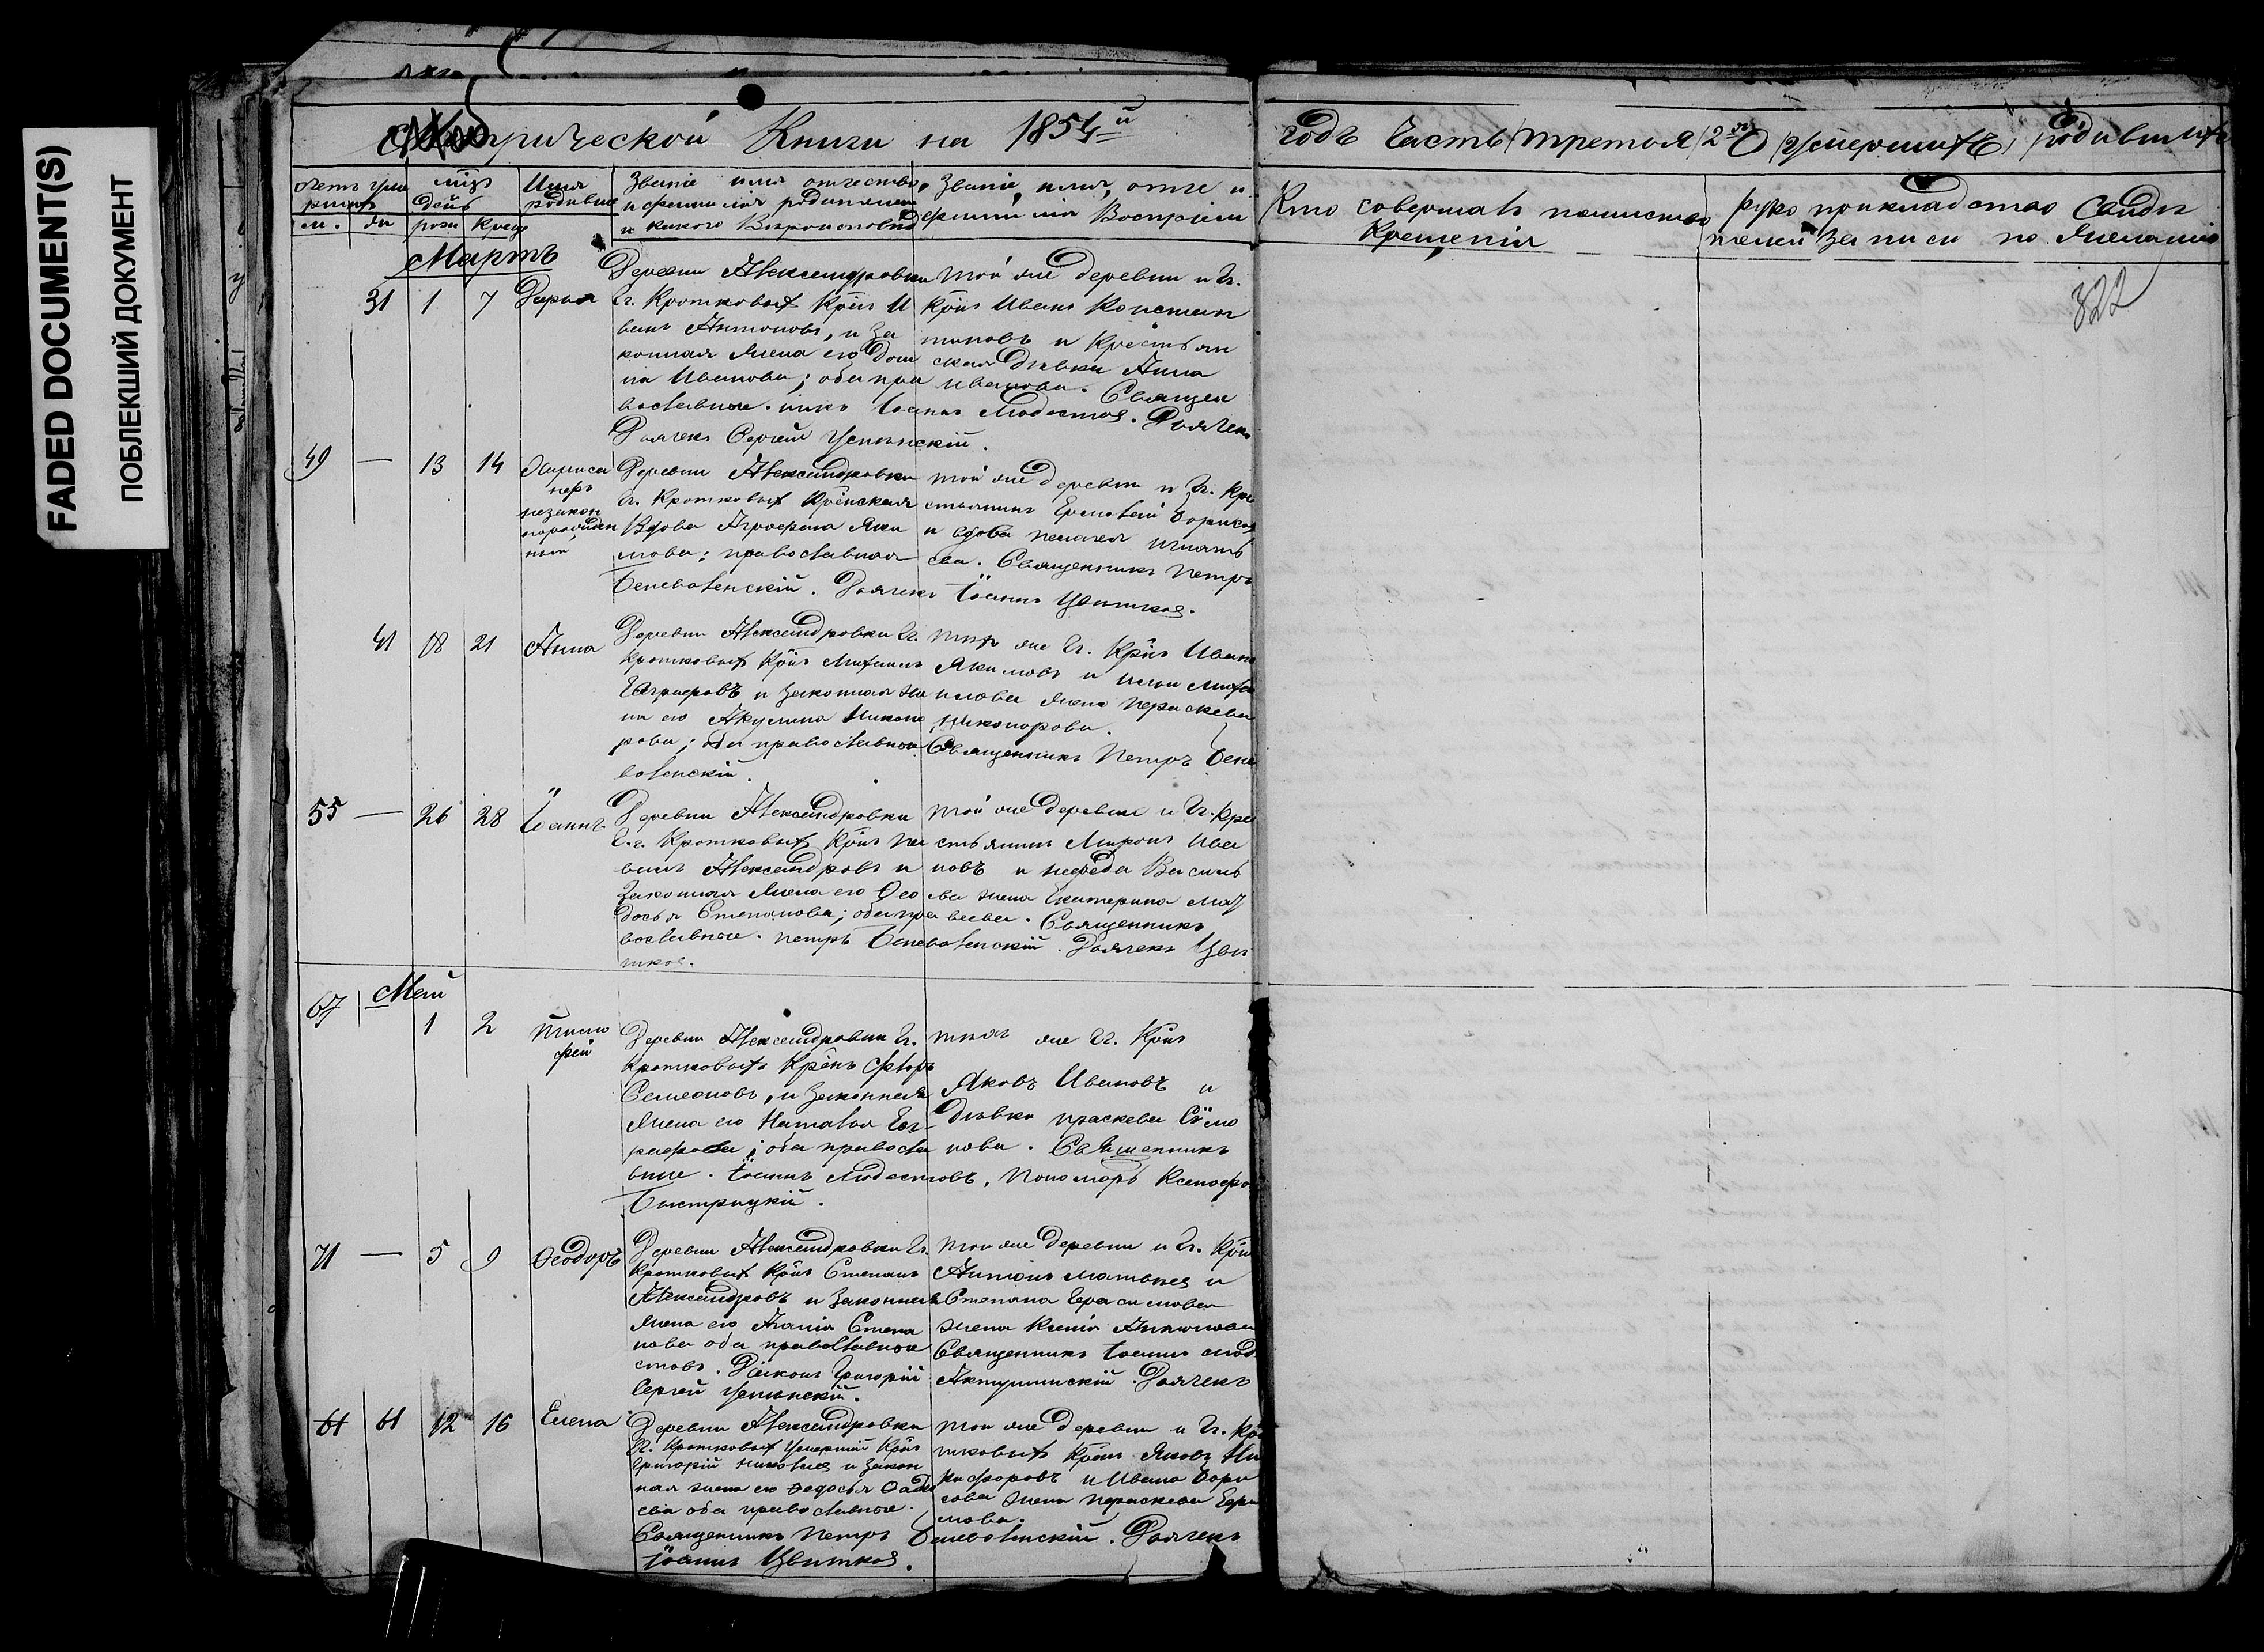 FADED DOCUMENT(S)
ПОБЛЕКШИЙ ДОКУМЕНТ
Метрической Книги на 1854й
годъ Часть третья 2я О умершихъ, родивших
Имя
родивше
Званіе имя отчество
и фамилія родителей
и какого Вероисповед
Званіе, имя, отче и
фамилія Воспріем
Кто совершалъ таинство
Крещенія
Рукоприкладство Свиде
телей записи по желанію
м. ж рож Крещ
822
Мартъ
31 1 7 Дарья
Деревни Александровки
Гг. Кротковыхъ Крнъ И
ванъ Антоновъ, и за
конная жена его Дом
на Иванова; оба пра
вославные.
той же деревни и Гг.
Крнъ Иванъ Констан
тиновъ и Крестьян
ская девка Анна
Иванова. Священ
никъ Іоаннъ Модестов. Дьячекъ
Дьячекъ Сергей Успенскій.
49 — 13 14
незакон
норожден
ный
Деревни Александровки
Гг. Кротковыхъ Крѣнская
Вдова Агрофена Яки
мова; православная
той же деревни и Гг. Кре
стьянинъ Ермолай Борисов
и вдова Пелагея Игнать
ева. Священникъ Петръ
Беневоленскій. Дьячекъ Іоаннъ Цветков.
41 18 21 Анна
Деревни Александровки Гг.
Кротковыхъ Крнъ Михаилъ
Евграфовъ и законная же
на его Акулина Никано
рова; оба православные
тех же Гг. Крнъ Иванъ
Якимовъ и Ильи Миха
илова жена Параскева
Никонорова.
Священникъ Петръ Бене
воленскій.
55 — 26 28 Іоаннъ
Деревни Александровки
Г.г. Кротковыхъ Крнъ Па
велъ Александровъ и
Законная жена его Ѳео
досья Степанова; оба пра
вославные.
той же деревни и Гг. Кре
стьянинъ Миронъ Ива
новъ и Василь
ева жена Екатерина Мат
веева. Священникъ
Петръ Беневоленскій. Дьячекъ Цвѣ
тков.
Май
67 1 2 Тимо
фей
Деревни Александровки Гг.
Кротковыхъ Крѣнъ Ѳедоръ
Семеоновъ, и Законная
жена его Наталья Евг-
рафова; оба правосла
вные.
техъ же Гг. Крнъ
Яковъ Ивановъ и
девка Праскева Сімо
нова. Священникъ
Іоаннъ Модестовъ, Пономарь Ксенофо
Быстрицкій.
71 — 5 9 Ѳеодоръ
Деревни Александровки Гг.
Кротковыхъ Крнъ Степанъ
Александровъ и Законная
жена его Агапія Степа
нова оба православные
той же деревни и Гг. Крнъ
Антонъ Матвеев и
Степана Герасимова
жена Ксенія Антонова
Священникъ Іоаннъ Моде
стовъ. Діаконъ Григорій Актушинскій. Дьячекъ
Сергей Успенскій.
61 61 12 16 Елена
Деревни Александровки
Гг. Кротковыхъ Умершій Крнъ
Григорій Николаев и Закон
ная жена его Ѳедосья Ѳадее
ева оба православные.
той же деревни и Гг. Кро
тковыхъ Крнъ Яковъ Ни
кифоровъ и Ивана Бори
сова жена Параскева Ефи
мова.
Священникъ Петръ Беневоленскій. Дьячекъ
Іоаннъ Цветков.